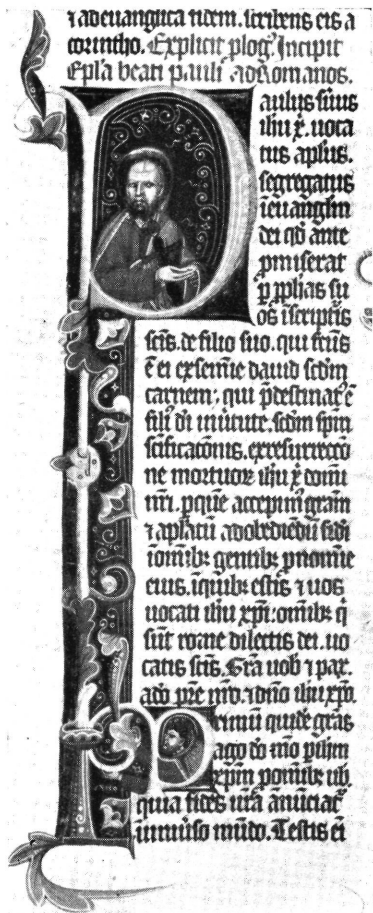 ⁊ ad euangłica fidem. scribens eis a
corintho. Explicit plog᷒. Incipit
Epła beati pauli ad Romanos.
Paulus suus
ihu x̄. uoca
tus apłus.
segregatus
ī euangłm
dei qđ ante
pmiserat
p pphas su
os ī scriptis
scīs. de filio suo. qui fcūs
ē ei ex semīe dauid scđm
carnem. qui pdestinat᷒ ē
fili᷒ di in uirtute. scđm spm̄
scīficacōnis. ex resurrecco
ne mortuoꝝ ihu x̄ domi
nri. p que accepim᷒ gram
⁊ apłatū ad obediēdū fidi
ī omībꝫ gentibꝫ p nomīe
eius. ī quibꝫ estis ⁊ uos
uocati ihu xp̄i. omībꝫ q
sūt rome dilectis dei. uo
catis scīs. Grā uob ⁊ pax
a do pre nro. ⁊ dno ihu xp̄o.
Primū quidē grās
ago do mo p ihm
xpm p omībꝫ uob.
quia fides urā ānūciat᷒
ī uniūso mūdo. Testis ei